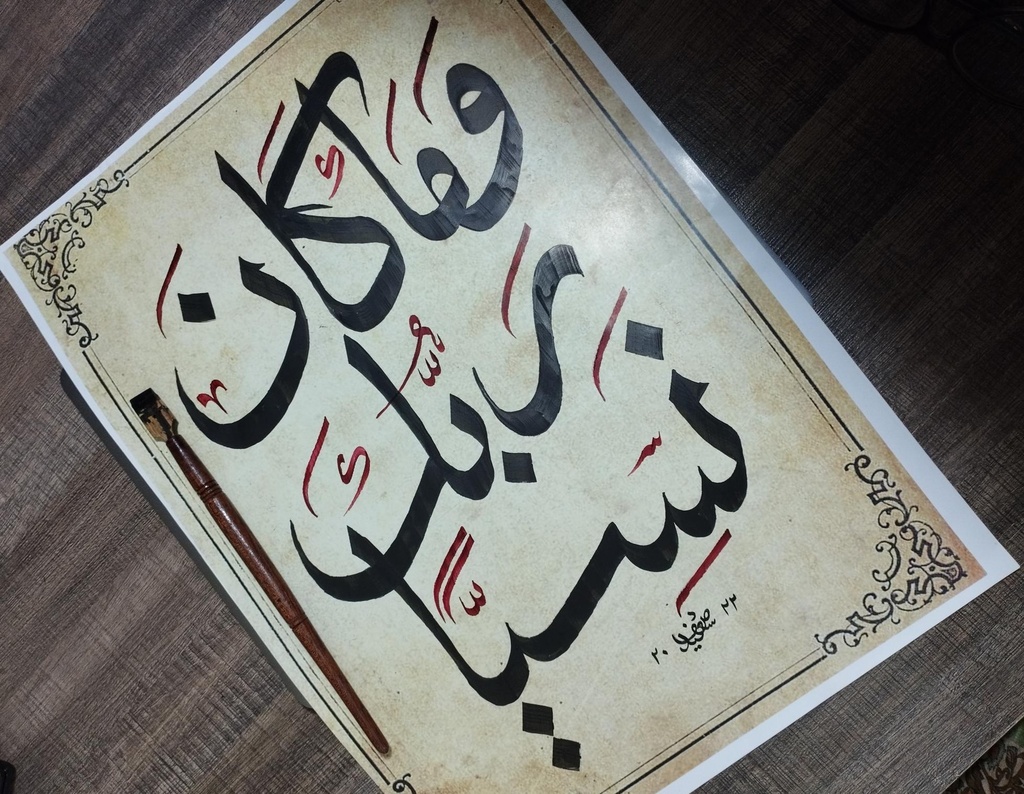 وَمَا كَانَ
رَبُّكَ
نَسِيًّا
٢٠٢٣